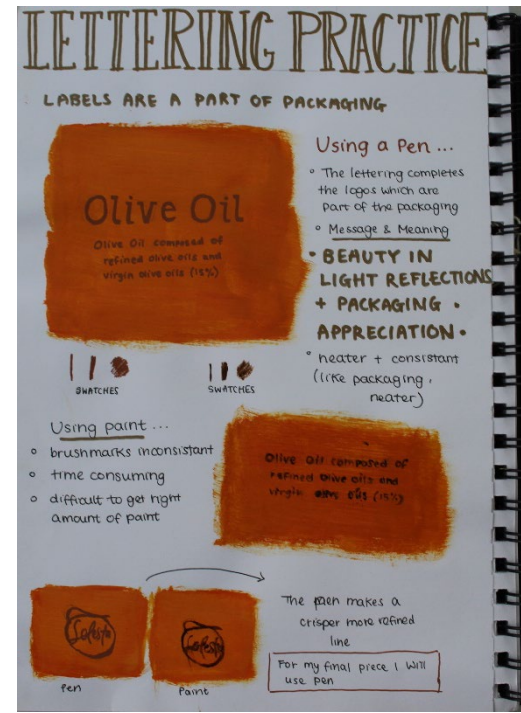 LETTERING PRACTICE
LABELS ARE A PART OF PACKAGING
Olive Oil
Olive Oil composed of
refined olive oils and
virgin olive oils (15%)
SWATCHES
SWATCHES
Using a Pen ...
The lettering completes
the logos which are
part of the packaging
Message & Meaning
BEAUTY IN
LIGHT REFLECTIONS
+ PACKAGING.
APPRECIATION.
neater + consistant
(like packaging,
neater)
Using paint ...
brushmarks inconsistant
time consuming
difficult to get right
amount of paint
Olive Oil composed of
refined olive oils and
virgin olive oils (15%)
Pen
Paint
The pen makes a
crisper more refined
line
For my final piece I will
use pen